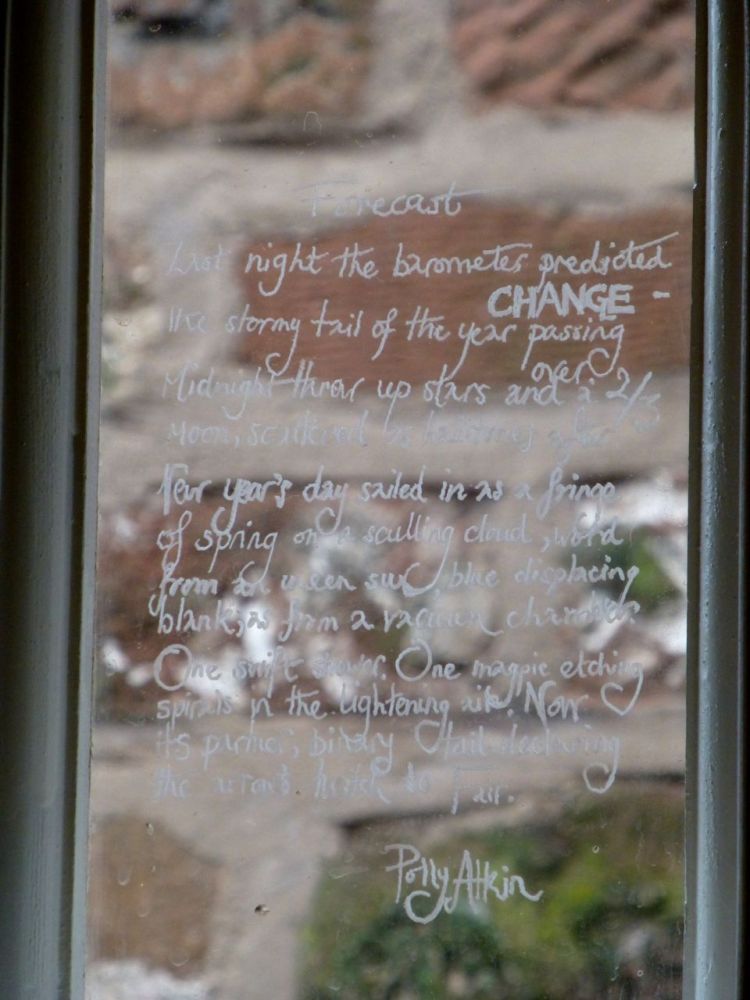 Forecast
Last night the barometer predicted
CHANGE -
the stormy tail of the year passing
over
Midnight threw up stars and a 2/3
Moon, scattered as hailstones after
New year's day sailed in as a fringe
of spring on a sculling cloud, word
from an unseen sun, blue displacing
blank, as from a vacuum chamber.
One swift shower. One magpie etching
spirals in the lightening air. Now
its partner, binary tail declaring
the arrow's to Fair.
Polly Atkin